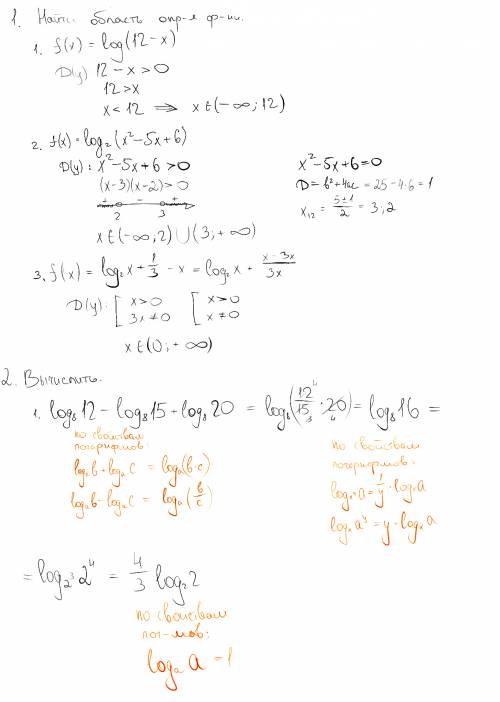 1. Найти область опр-я ф-ии.
1. f(x) = log(12-x)
D(y) 12-x>0
12>x
x<12 ⟹ x∈(-∞;12)
2. f(x)=log₂(x²-5x+6)
D(y): x²-5x+6>0
(x-3)(x-2)>0
+ - +
2 3
x∈(-∞;2)∪(3;+∞)
x²-5x+6=0
D=b²+4ac=25-4·6=1
x₁₂ = (5±1)/2 = 3;2
3. f(x) = log₂x + 1/3 - x = log₂x + (x-3x)/3x
D(y): [x>0 [x>0
[3x≠0 [x≠0
x∈(0;+∞)
2. Вычислить.
1. log₈12 - log₈15 + log₈20 = log₈(12⁴/15₃ · 20₄) = log₈16 =
по свойствам
логарифмов:
logₐb+logₐc = logₐ(b·c)
logₐb-logₐc = logₐ(b/c)
по свойствам
логарифмов:
logₓʸa = 1/y · logₓa
logₓaʸ = y·logₓa
= log₂³2⁴ = 4/3 log₂2
по свойствам
лог-мов:
logₐa = 1